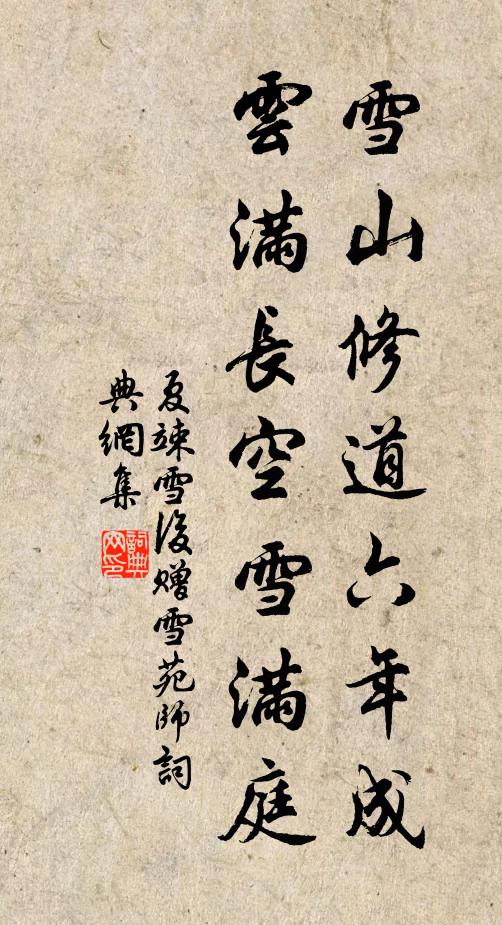 雪山修道六年成
雲滿長空雪滿庭
夏竦雪後贈雪苑師詞
典網集
詞典網印